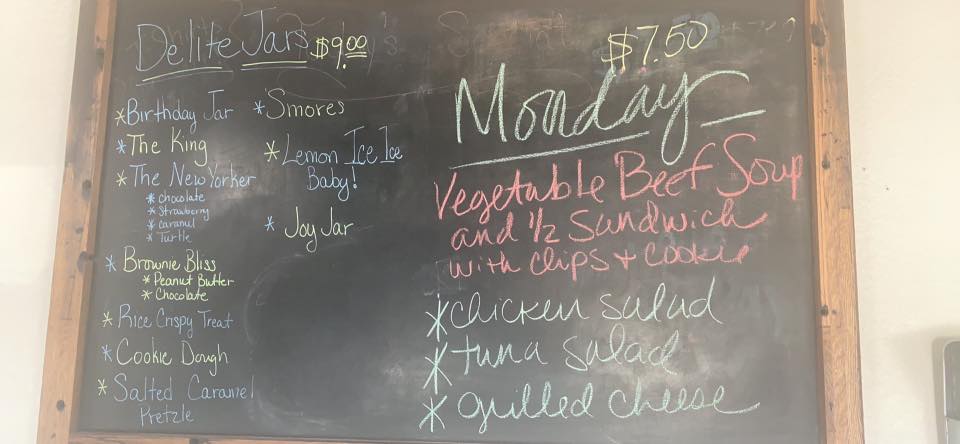 Delite Jars $9.00
*Birthday Jar
*The King
*The New Yorker
* chocolate
* Strawberry
* caramel
* Turtle
* Brownie Bliss
* Peanut Butter
* Chocolate
* Rice Crispy Treat
* Cookie Dough
* Salted Caramel
Pretzle
*Smores
*Lemon Ice Ice
Baby!
* Joy Jar
$7.50
Monday
Vegetable Beef Soup
and 1/2 Sandwich
with chips + cookie
*chicken salad
*tuna salad
* grilled cheese